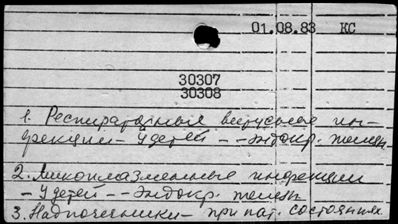 01.08.83 КС
30307
30308
1. Респираторные вирусные ин-
фекции - У детей - - Эндокр. железы
2. Микоплазменные инфекции
- У детей - - Эндокр. железы
3. Надпочечники - при пат. состояниях